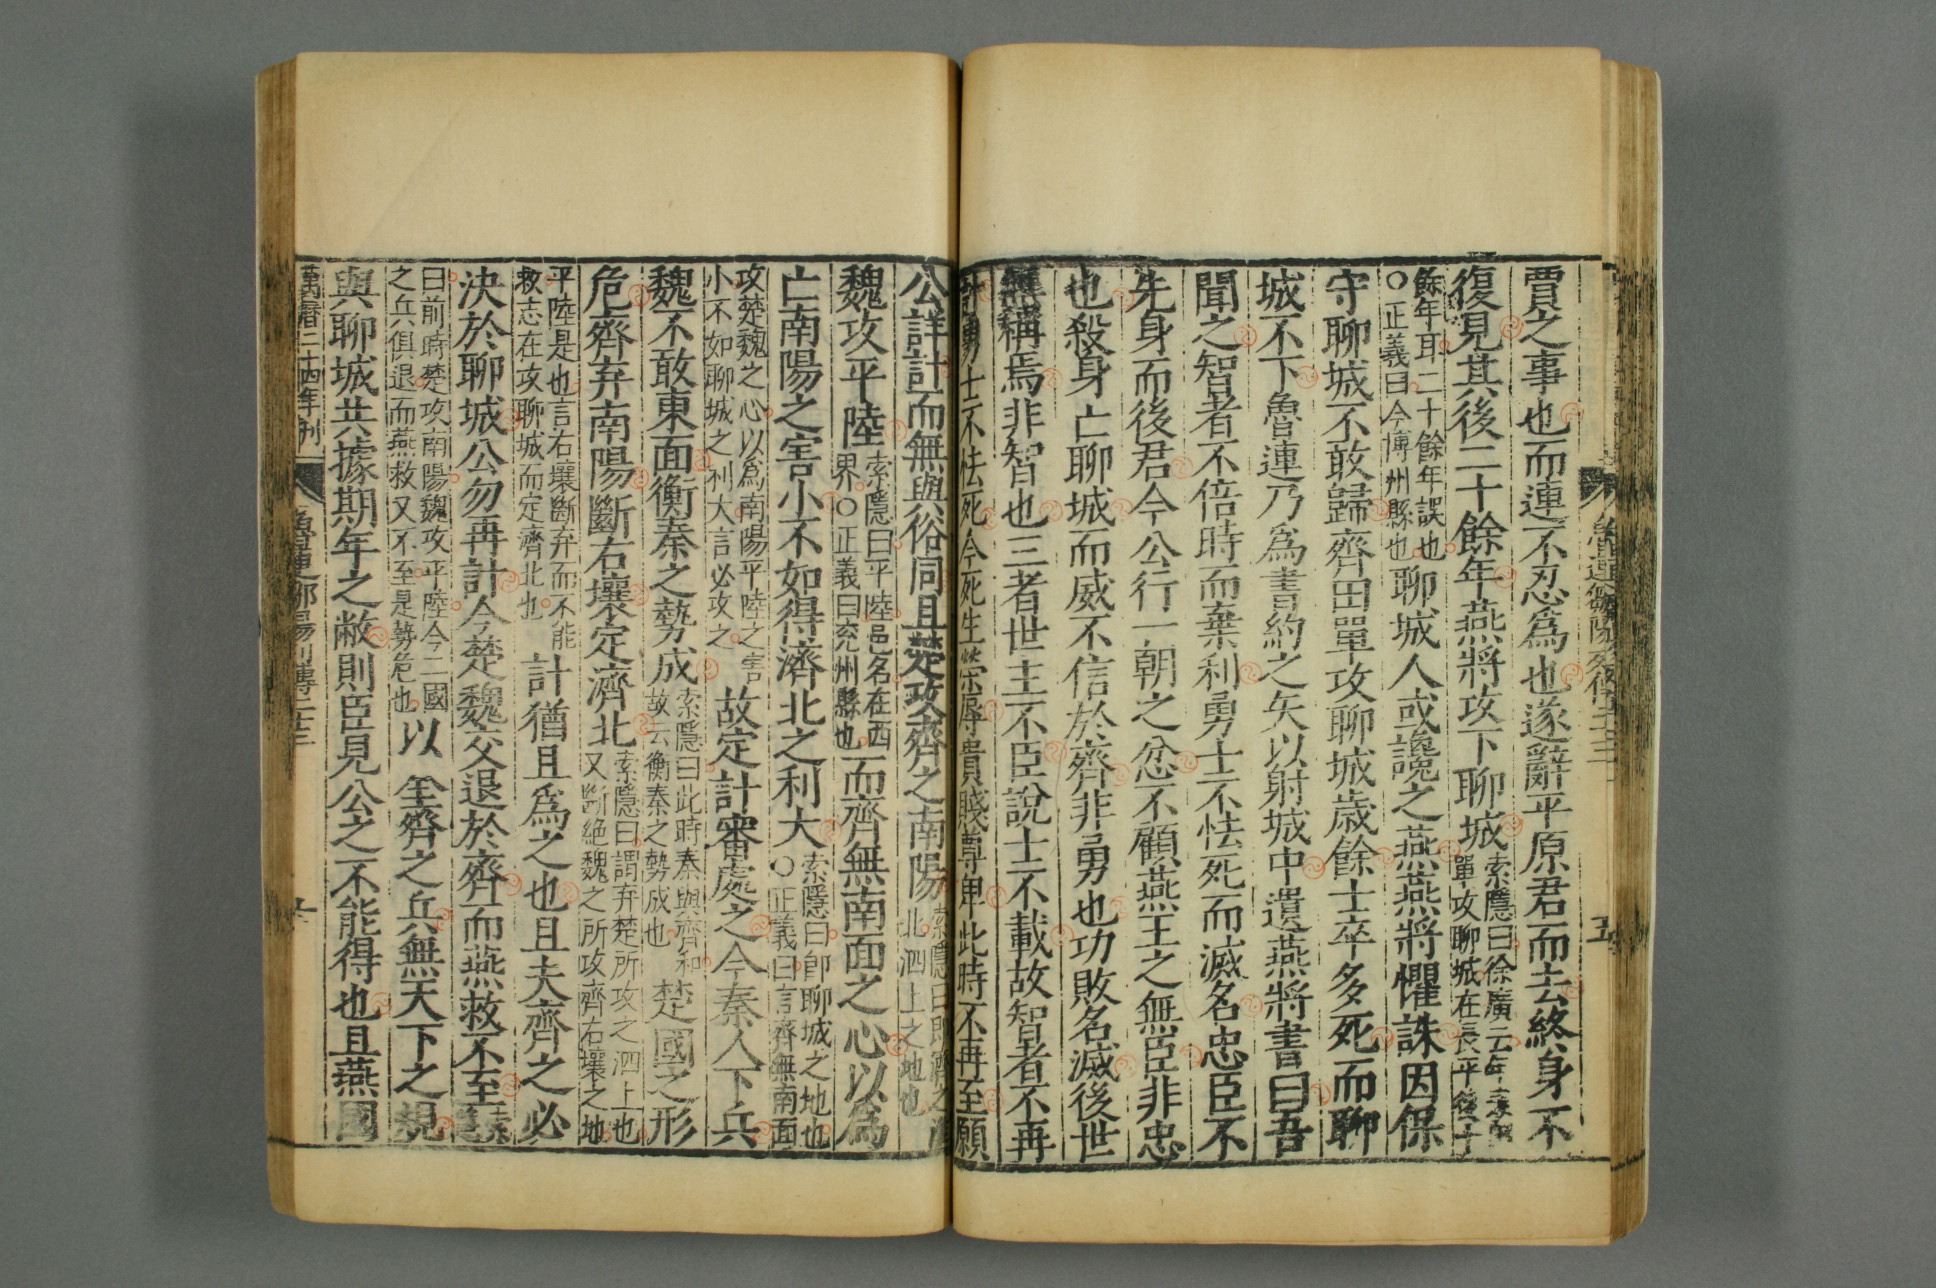 賈之事也而連不忍爲也遂辭平原君而去終身不
復見其後二十餘年燕將攻下聊城索隱曰徐廣云年表
單攻聊城在長平後十
餘年耳二十餘年誤也
○正義曰今博州縣也聊城人或讒之燕燕將懼誅因保
守聊城不敢歸齊田單攻聊城歲餘士卒多死而聊
城不下魯連乃爲書約之矢以射城中遺燕將書曰吾
聞之智者不倍時而棄利勇士不怯死而滅名忠臣不
先身而後君今公行一朝之忿不顧燕王之無臣非忠
也殺身亡聊城而威不信於齊非勇也功敗名滅後世
無稱焉非智也三者世主不臣說士不載故智者不再
計勇士不怯死今死生榮辱貴賤尊卑此時不再至願
公詳計而無與俗同且楚攻齊之南陽索隱曰即齊之淮
北泗上之地也
魏攻平陸索隱曰平陸邑名在西
界○正義曰兖州縣也而齊無南面之心以爲
亡南陽之害小不如得濟北之利大索隱曰即聊城之地也
○正義曰言齊無南面
攻楚魏之心以爲南陽平陸之害
小不如聊城之利大言必攻之故定計審處之今秦人下兵
魏不敢東面衡秦之勢成索隱曰此時秦與齊和
故云衡秦之勢成也楚國之形
危齊弃南陽斷右壤定濟北索隱曰謂弃楚所攻之泗上也
又斷絕魏之所攻齊右壤之地
平陸是也言右壤斷弃而不能
救志在攻聊城而定濟北也計猶且爲之也且夫齊之必
決於聊城公勿再計今楚魏交退於齊而燕救不至索隱
曰前時楚攻南陽魏攻平陸今二國
之兵俱退而燕救又不至是勢危也以全齊之兵無天下之規
與聊城共據期年之敝則臣見公之不能得也且燕國
萬曆二十四年刊
魯連鄒陽列傳二十三
十
魯連鄒陽列傳二十三
五